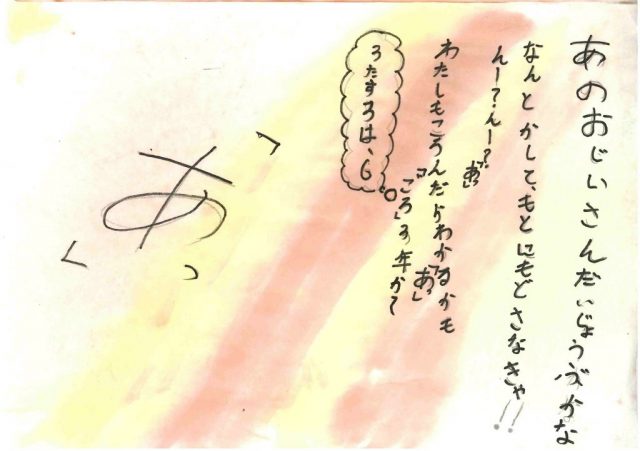 あのおじいさんだいじょうぶかな
なんとかして、もとにもどさなきゃ!!
んー?んー?「あっ」
わたしもころんだらわかるかも
「あっ」
「ころ」3年かて
3たす3は、6
「あっ」